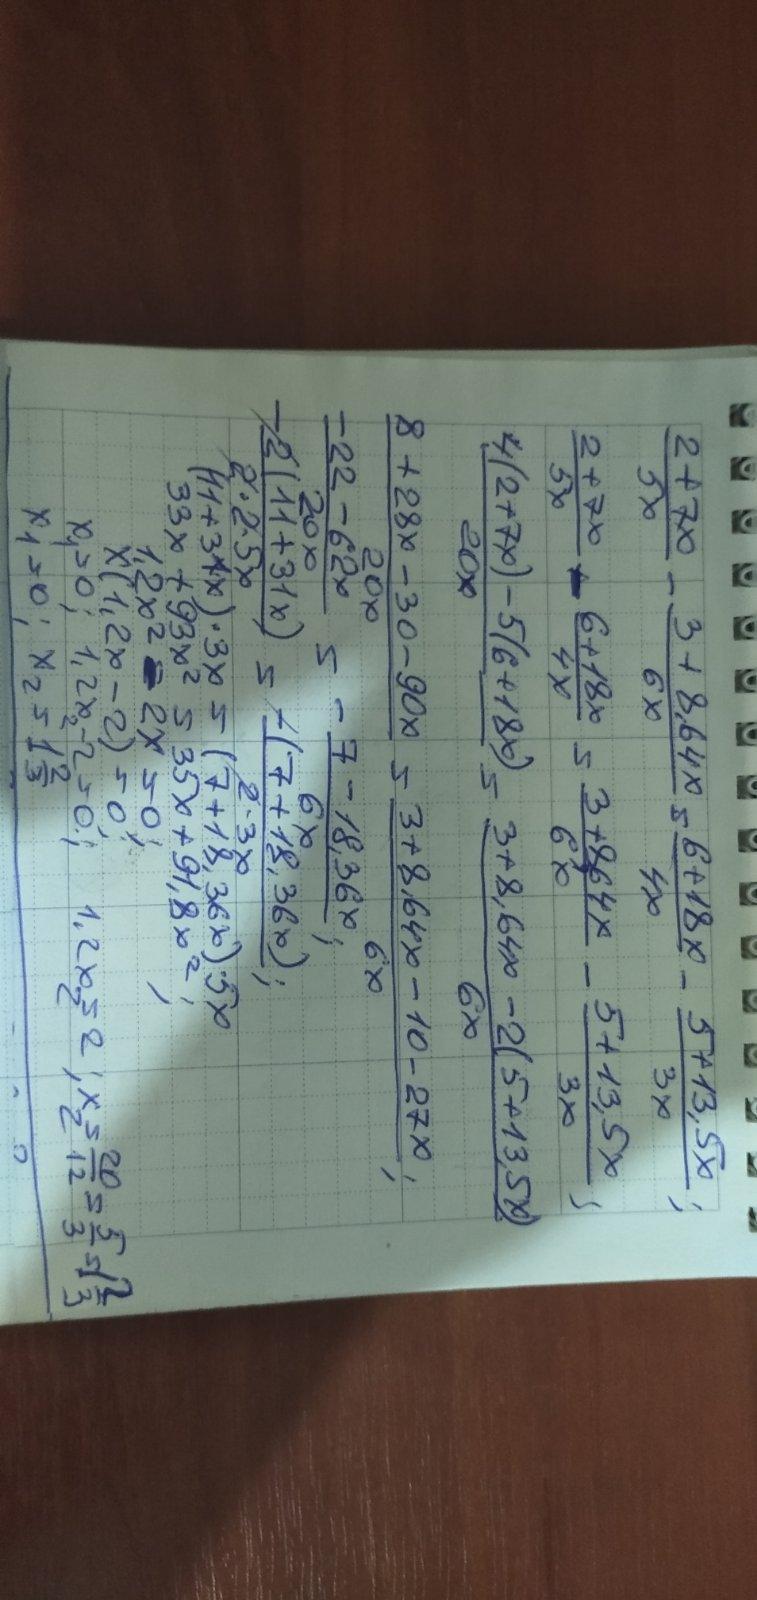 (2+7x)/5x - (3+8,64x)/6x = (6+18x)/4x - (5+13,5x)/3x;
(2+7x)/5x - (6+18x)/4x = (3+8,64x)/6x - (5+13,5x)/3x;
(4(2+7x)-5(6+18x))/20x = (3+8,64x-2(5+13,5x))/6x
(8+28x-30-90x)/20x = (3+8,64x-10-27x)/6x;
(-22-62x)/20x = (-7-18,36x)/6x;
-2(11+31x)/2·2·5x = -(7+18,36x)/2·3x;
(11+31x)·3x = (7+18,36x)5x
33x+93x² = 35x+91,8x²;
1,2x²-2x=0;
x(1,2x-2)=0;
x₁=0; 1,2x₂-2=0; 1,2x₂=2; x₂=20/12=5/3=1 2/3
x₁=0; x₂=1 2/3